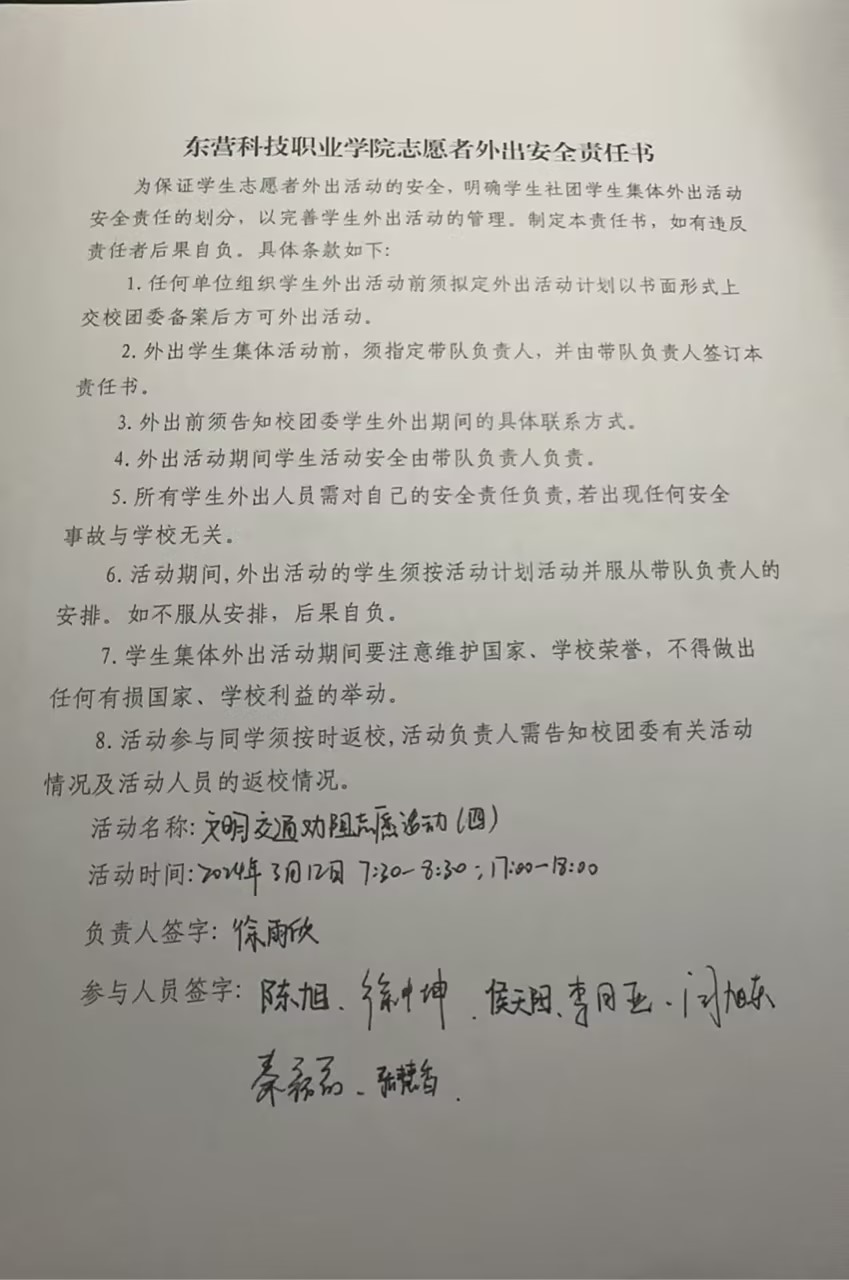 东营科技职业学院志愿者外出安全责任书
为保证学生志愿者外出活动的安全，明确学生社团学生集体外出活动
安全责任的划分，以完善学生外出活动的管理。制定本责任书，如有违反
责任者后果自负。具体条款如下:
1. 任何单位组织学生外出活动前须拟定外出活动计划以书面形式上
交校团委备案后方可外出活动。
2. 外出学生集体活动前，须指定带队负责人，并由带队负责人签订本
责任书。
3. 外出前须告知校团委学生外出期间的具体联系方式。
4. 外出活动期间学生活动安全由带队负责人负责。
5. 所有学生外出人员需对自己的安全责任负责,若出现任何安全
事故与学校无关。
6. 活动期间,外出活动的学生须按活动计划活动并服从带队负责人的
安排。如不服从安排，后果自负。
7. 学生集体外出活动期间要注意维护国家、学校荣誉，不得做出
任何有损国家、学校利益的举动。
8. 活动参与同学须按时返校,活动负责人需告知校团委有关活动
情况及活动人员的返校情况。
活动名称: 文明交通劝阻志愿活动(四)
活动时间: 2024年3月12日 7:30-8:30;17:00-18:00
负责人签字: 徐雨欣
参与人员签字: 陈旭、徐中坤、侯天阳、李月亚、闫旭东
秦磊、张慧香.